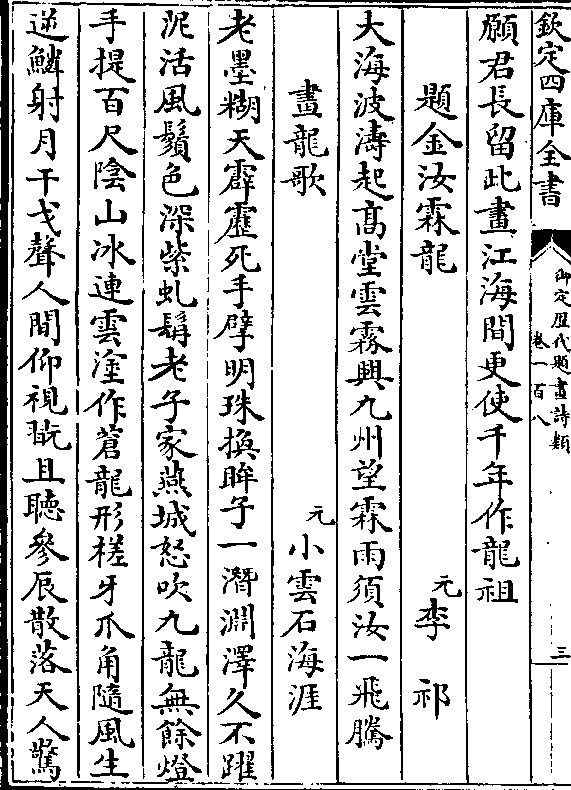 欽定四庫全書
御定歷代題畫詩類
卷一百八
三
願君長留此畫江海間更使千年作龍祖
題金汝霖龍
元李祁
大海波濤起高堂雲霧興九州望霖雨須汝一飛騰
畫龍歌
元小雲石海涯
老墨糊天霹靂死手擘明珠換眸子一潛淵澤久不躍
泥活風鬚色深紫虬髯老子家燕城怒吹九龍無餘燈
手提百尺陰山冰連雲塗作蒼龍形槎牙爪角隨風生
逆鱗射月干戈聲人間仰視翫且聽參辰散落天人驚